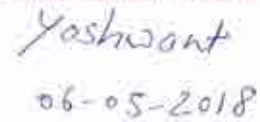 Yashwant
06-05-2018